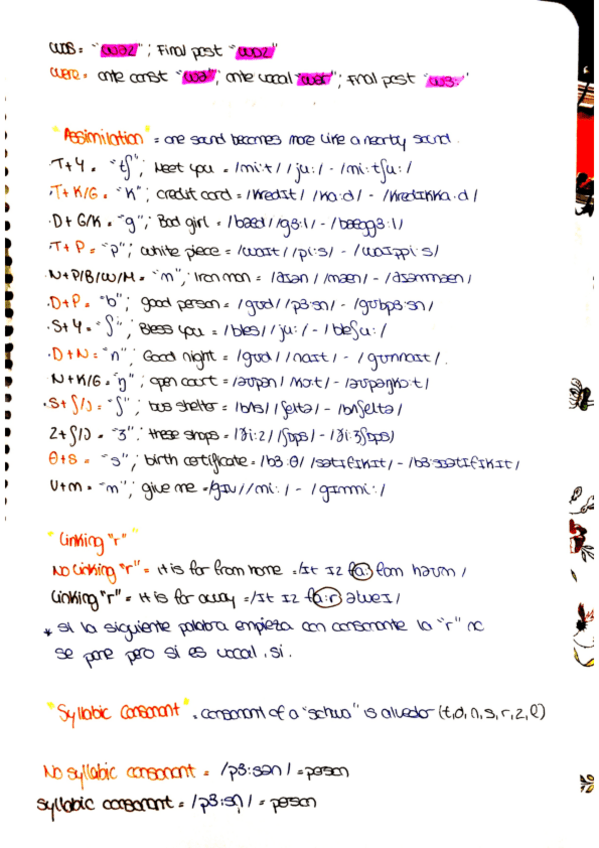 was = "wəz"; Final post "wɒz"
were = ante const "wə"; ante vocal "wər"; final post "wɜ:"
"Assimilation" = one sound becomes more like a nearby sound.
T+Y = "tʃ"; Meet you = /mi:t/ /ju:/ - /mi:tʃu:/
·T+K/G = "K"; credit card = /kredɪt/ /ka:d/ - /kredɪkka:d/
D+G/K = "g"; Bad girl = /bæd/ /gɜ:l/ - /bæggɜ:l/
·T+P = "p"; white piece = /waɪt/ /pi:s/ - /waɪppi:s/
·N+P/B/W/M = "m"; Iron man = /aɪən/ /mæn/ - /aɪəmmæn/
·D+P = "b"; good person = /gʊd/ /pɜ:sn/ - /gʊbpɜ:sn/
·S+Y = "ʃ"; Bless you = /bles/ /ju:/ - /bleʃu:/
·D+N = "n"; Good night = /gʊd/ /naɪt/ - /gʊnnaɪt/.
N+K/G = "ŋ"; open court = /əʊpən/ /kɔ:t/ - /əʊpəŋkɔ:t/
·S+ʃ/J = "ʃ"; bus shelter = /bʌs/ /ʃeltə/ - /bʌʃeltə/
Z+ʃ/J = "ʒ"; these shops = /ði:z/ /ʃɒps/ - /ði:ʒʃɒps/
θ+S = "s"; birth certificate = /bɜ:θ/ /sətɪfɪkɪt/ - /bɜ:ssətɪfɪkɪt/
V+m = "m"; give me = /gɪv/ /mi:/ - /gɪmmi:/
"Linking "r""
No Linking "r" = It is far from home = /ɪt ɪz fa: fəm həʊm/
Linking "r" = It is far away = /ɪt ɪz fa:r əweɪ/
* si la siguiente palabra empieza con consonante la "r" no
se pone pero si es vocal, si.
"Syllabic consonant" = consonant of a "schwa" is alveolar (t,d,n,s,r,z,l)
No syllabic consonant = /pɜ:sən/ = person
syllabic consonant = /pɜ:sn̩/ = person